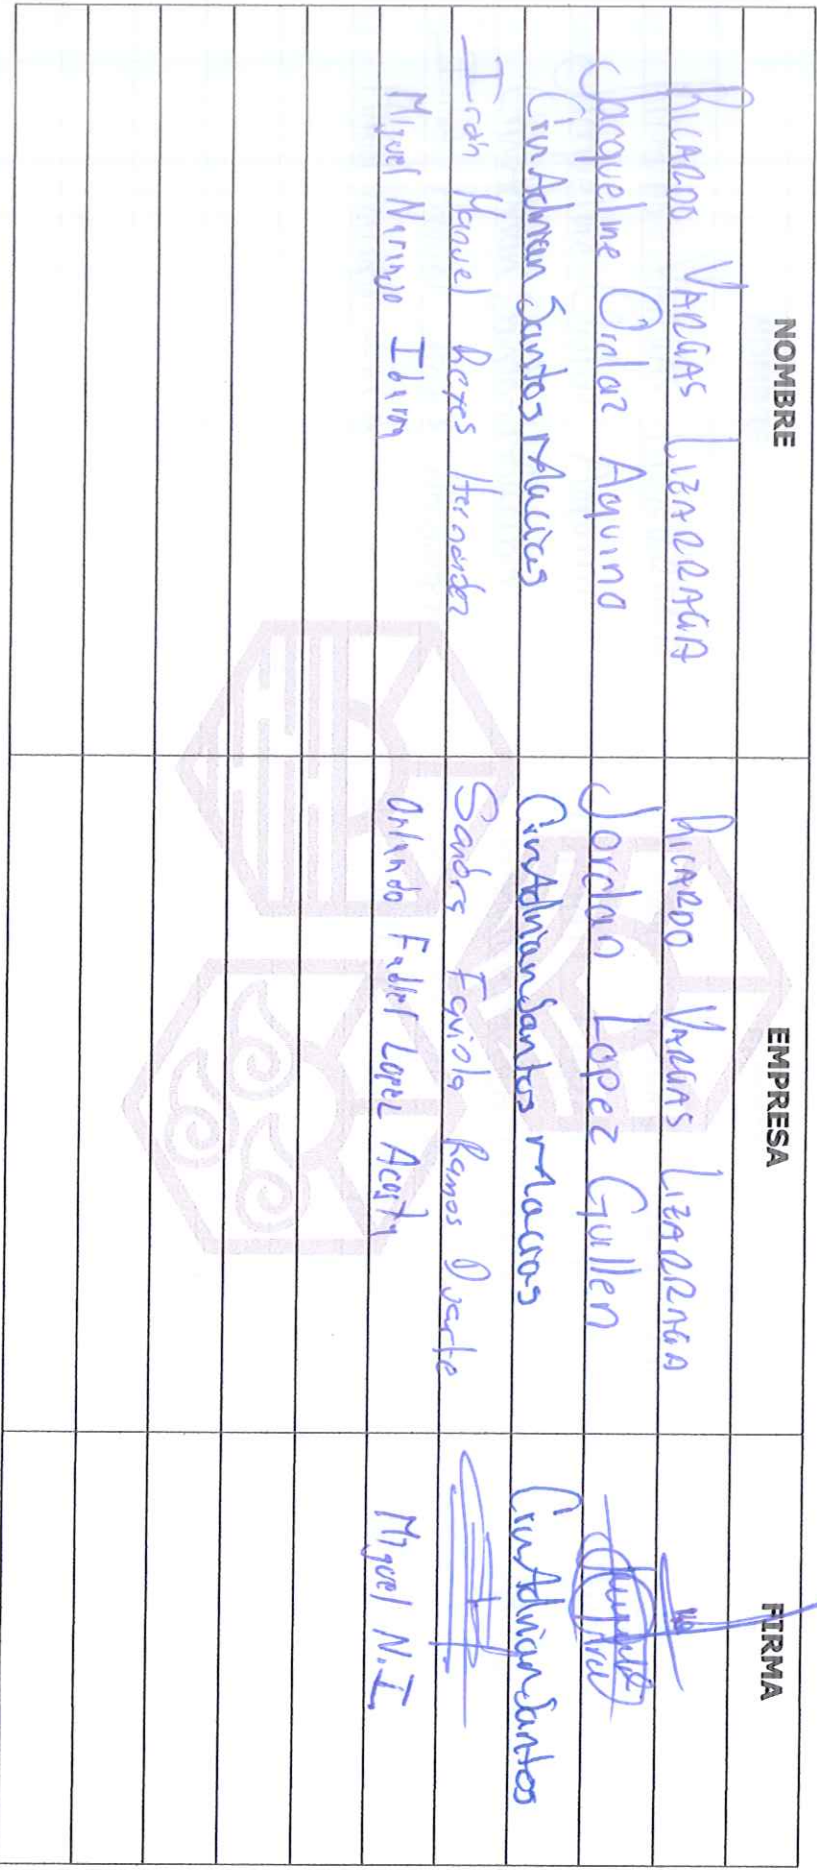 NOMBRE EMPRESA FIRMA
RICARDO VARGAS LIZARRAGA RICARDO VARGAS LIZARRAGA
Jacqueline Ordaz Aquino Jordan Lopez Guillen
Adrian Santos Macias Adrian Santos Macias Adrian Santos
Iran Manuel Reyes Hernandez Sandra Faviola Ramos Duarte
Miguel Naranjo Orlando Lopez Acosta Miguel N.I.